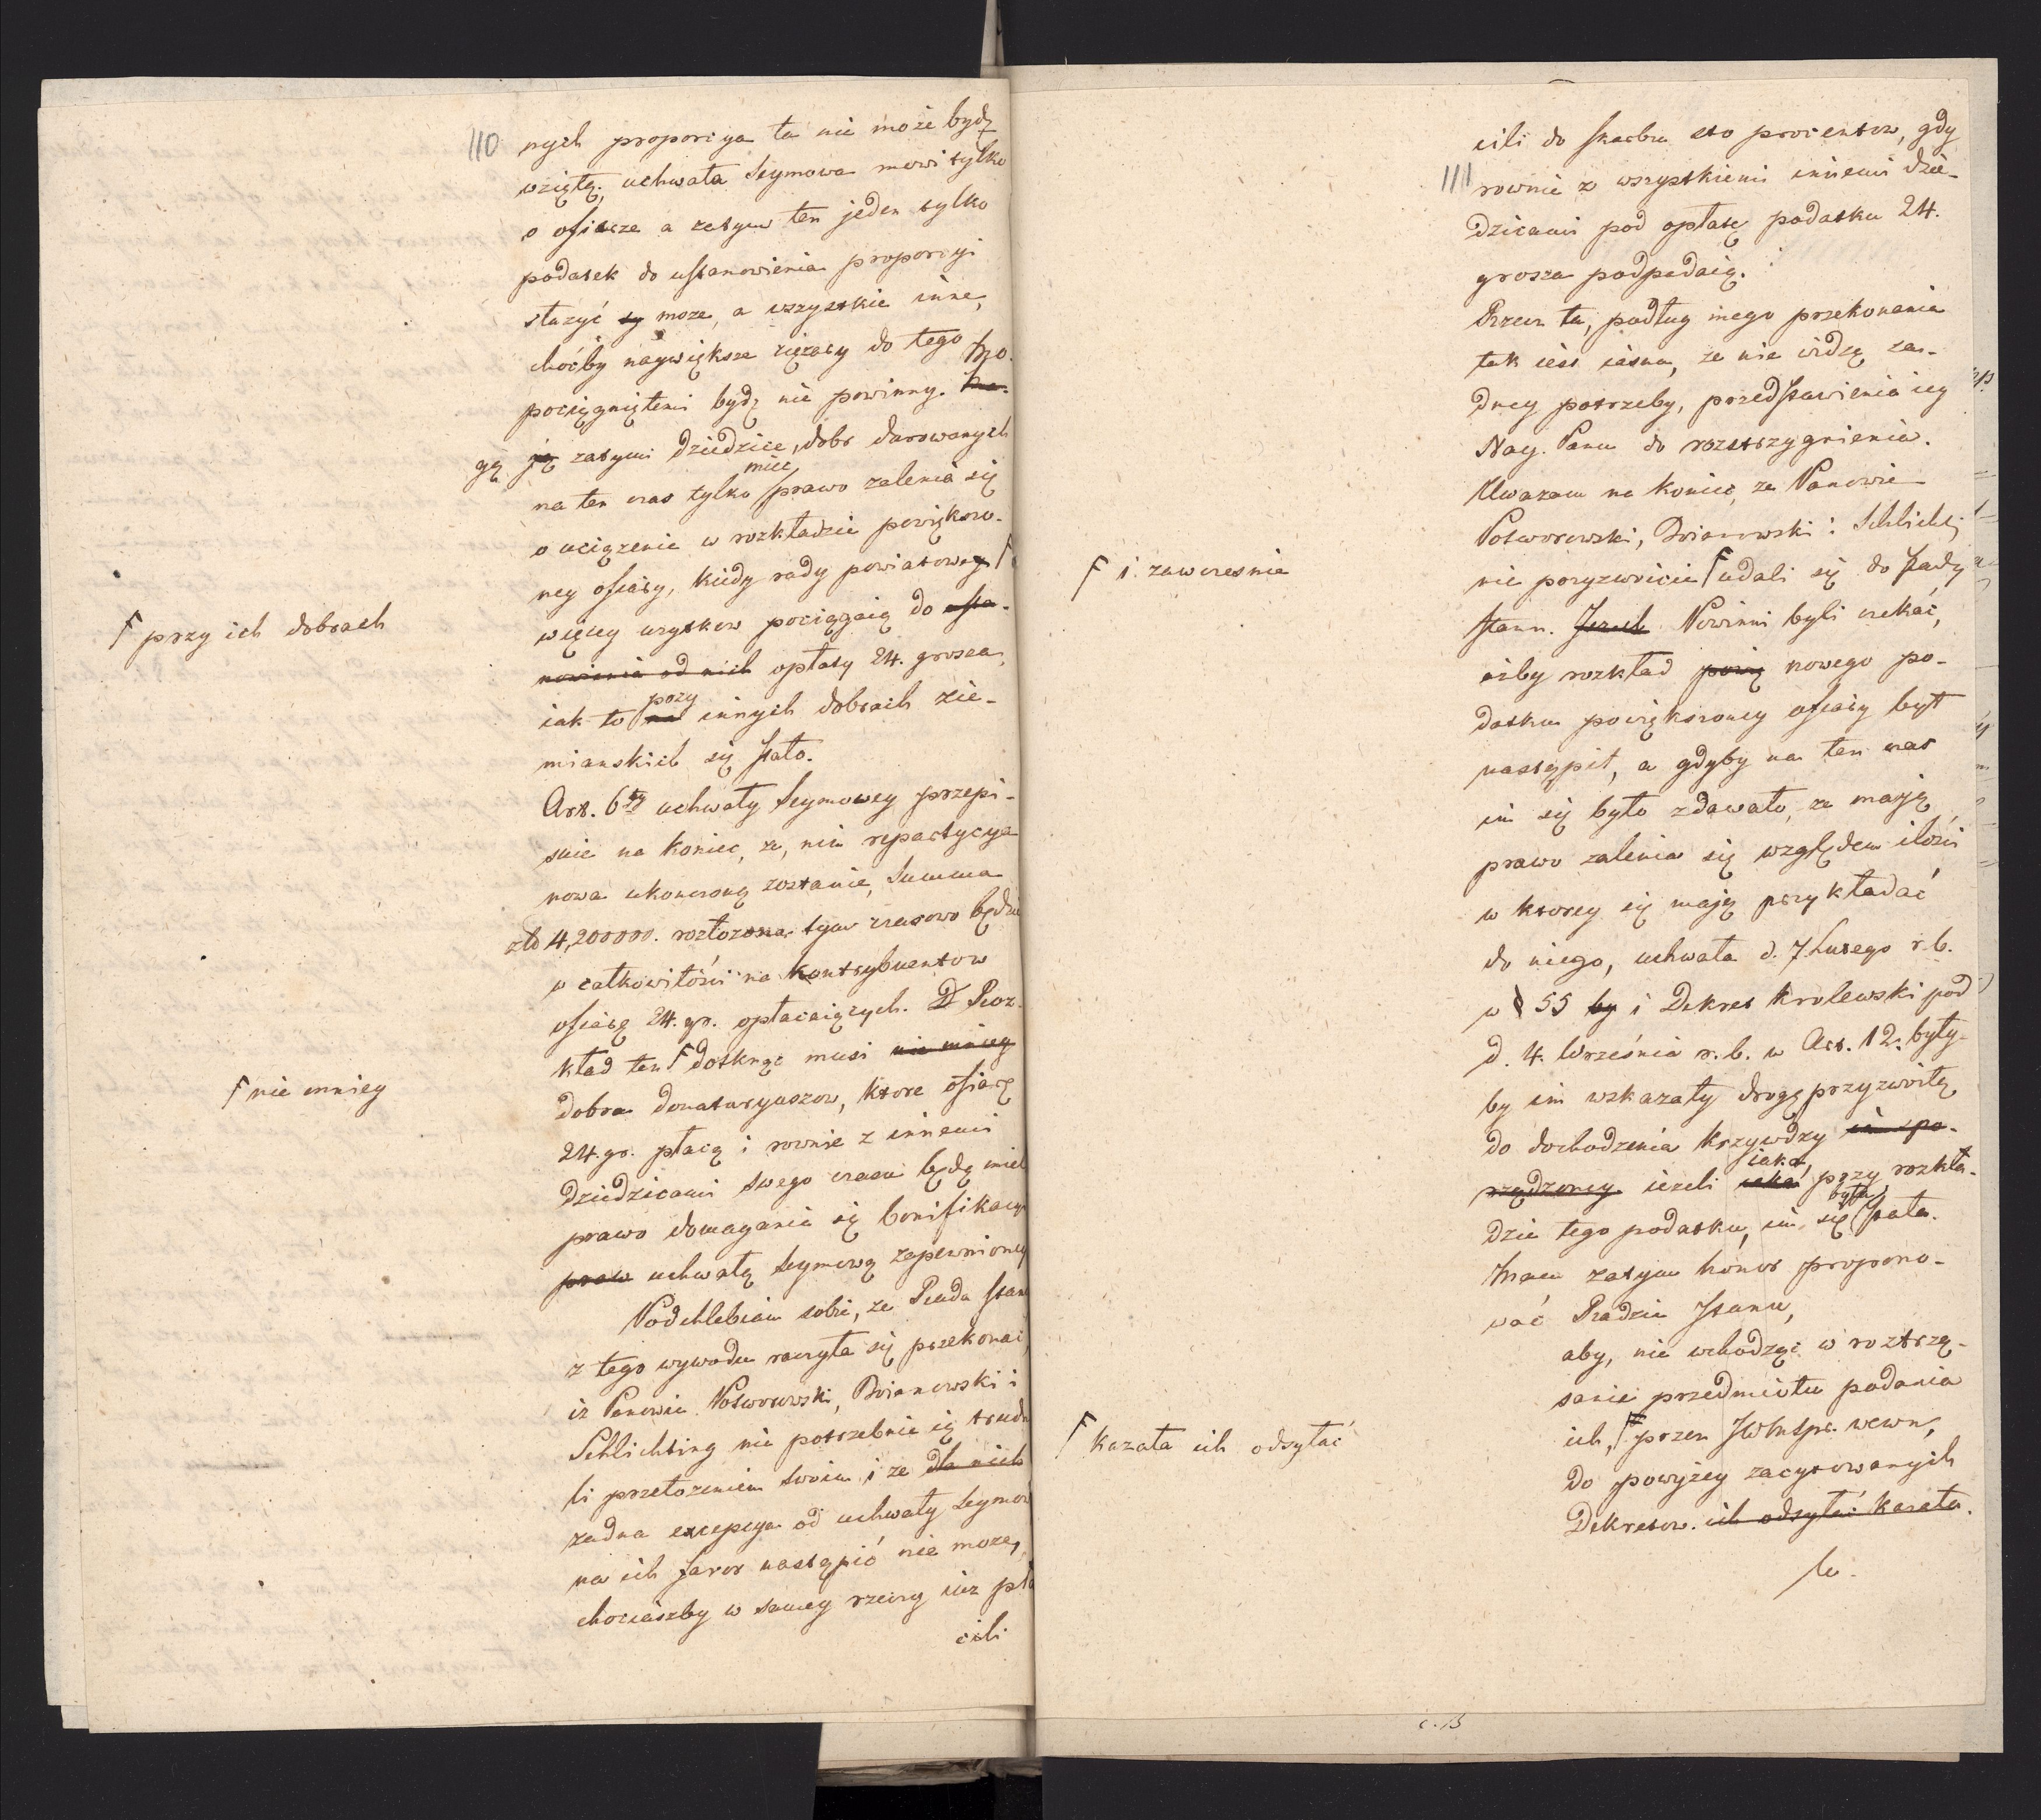 110
nych proporcya ta nie może bydź
wziętą; uchwała Seymowa mowi tylko
o ofierze a zatym ten jeden tylko
podatek do ustanowienia proporcyi
służyć może, a wszystkie inne,
choćby naywiększe ciężary do tego
pociągniętemi bydź nie powinny. Mo-
gą zatym dziedzice, dobr darowanych
na ten czas tylko mieć prawo żalenia się
o uciążenie w rozkładzie powiększo-
ney ofiary, kiedy rady powiatowe F
więcey uzyskow pociągaią do usta-
nowienia od nich opłaty 24. grosza,
iak to przy innych dobrach zie-
miańskich się stało.
F przy ich dobrach
Art. 6ty uchwały Seymowey przepi-
suie na koniec, że, nim repartycya
nowa ukonczoną zostanie, Summa
złł 4,200000. rozłożona tym czasowo będzie
w całkowitości na kontrybuentow
ofiarę 24. gr. opłacaiących. Roz-
kład ten F dotknąć musi nie mniey
dobra donataryuszow, ktore ofiarę
24. gr. płacą i rownie z innemi
dziedzicami swego czasu będą mieć
prawo domagania się bonifikacyi
praw uchwałą Seymową zapewnioney
F nie mniey
Podchlebiam sobie, że Rada Stanu
z tego wywodu raczyła się przekonać,
iż Panowie Potworowski, Boianowski i
Schlichting nie potrzebnie się trudni
li przełożeniem swoim i że dla nich
żadna excepcya od uchwały Seymow
na ich favor nastąpić nie może,
chociażby w samey rzeczy iuż pła
cili
111
cili do skarbu sto procentow, gdy
rownie z wszystkiemi innemi dzie-
dzicami pod opłatę podatku 24.
grosza podpadaią.
Rzecz ta, podług mego przekonania
tak iest iasna, że nie widzę ża-
dney potrzeby, przedstawienia iey
Nay. Panu do rozstrzygnienia.
Uważam na koniec, że Panowie
Potworowski, Boianowski i Schlichti
nie przyzwoicie F udali się do Rady
Stanu. Powinni byli czekać,
F i zawcześnie
iżby rozkład nowego po-
datku powiększoney ofiary był
nastąpił, a gdyby na ten czas
im się było zdawało, że maią
prawo żalenia się względem ilości
w ktorey się maią przykładać
do niego, uchwała d. 7 Lutego r. b.
w § 55 i Dekret Krolewski pod
d. 4. Września r. b. w Art. 12. były-
by im wskazały drogę przyzwoitą
do dochodzenia krzywdy im spo-
rządzoney ieżeli iaka przy rozkła-
dzie tego podatku, im się była stała.
Mam zatym honor propono-
wać Radzie Stanu,
aby, nie wchodząc w roztrzą-
sanie przedmiotu podania
ich, F przez JW Mspr. wewn,
do powyżey zacytowanych
Dekretow. ich odsyłać kazała.
F kazała ich odsyłać